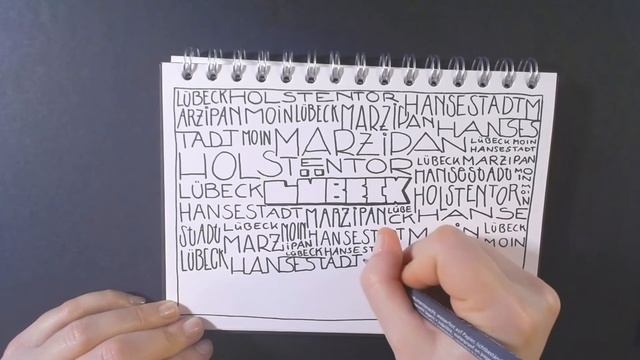 LÜBECK HOLSTENTOR HANSESTADT M
ARZIPAN MOIN LÜBECK MARZIPAN HANSES
TADT MOIN MARZIPAN LÜBECK MOIN
HANSESTADT
HOLSTENTOR LÜBECK MARZIPAN
HANSESTADT MOIN
LÜBECK LÜBECK HOLSTENTOR
HANSESTADT MARZIPAN LÜBECK HANSE
STADT LÜBECK MOIN HANSESTADT LÜBECK
MARZIPAN MOIN
LÜBECK LÜBECK HANSEST
HANSESTADT